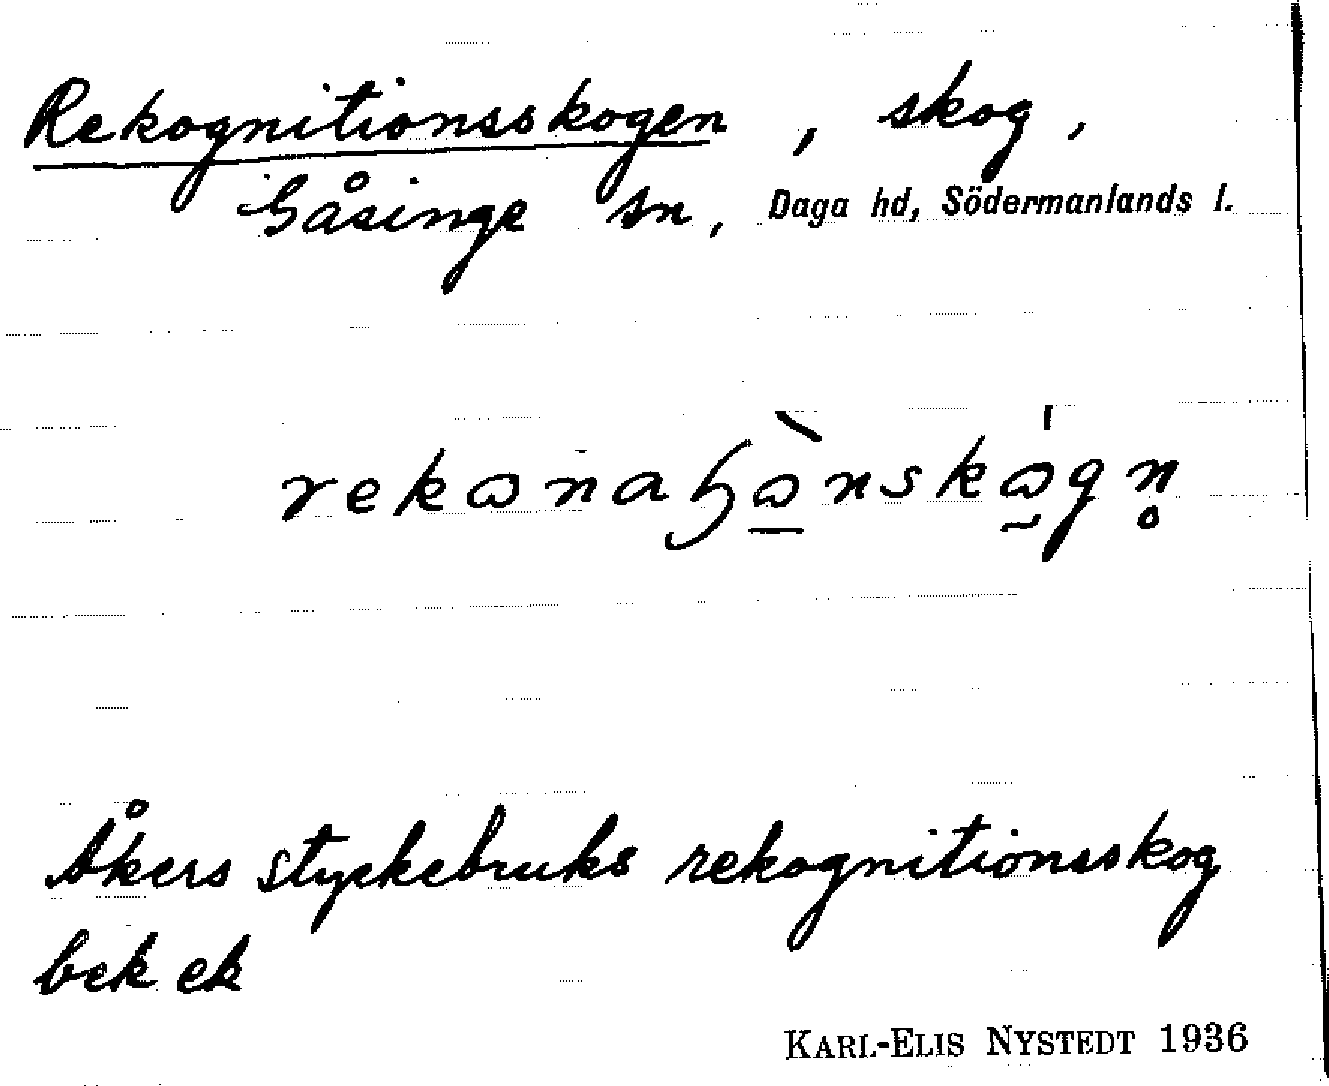 Rekognitionsskogen, skog,
Gåsinge sn, Daga hd, Södermanlands l.
Åkers styckebruks rekognitionsskog
bek ek
KARL-ELIS NYSTEDT 1936